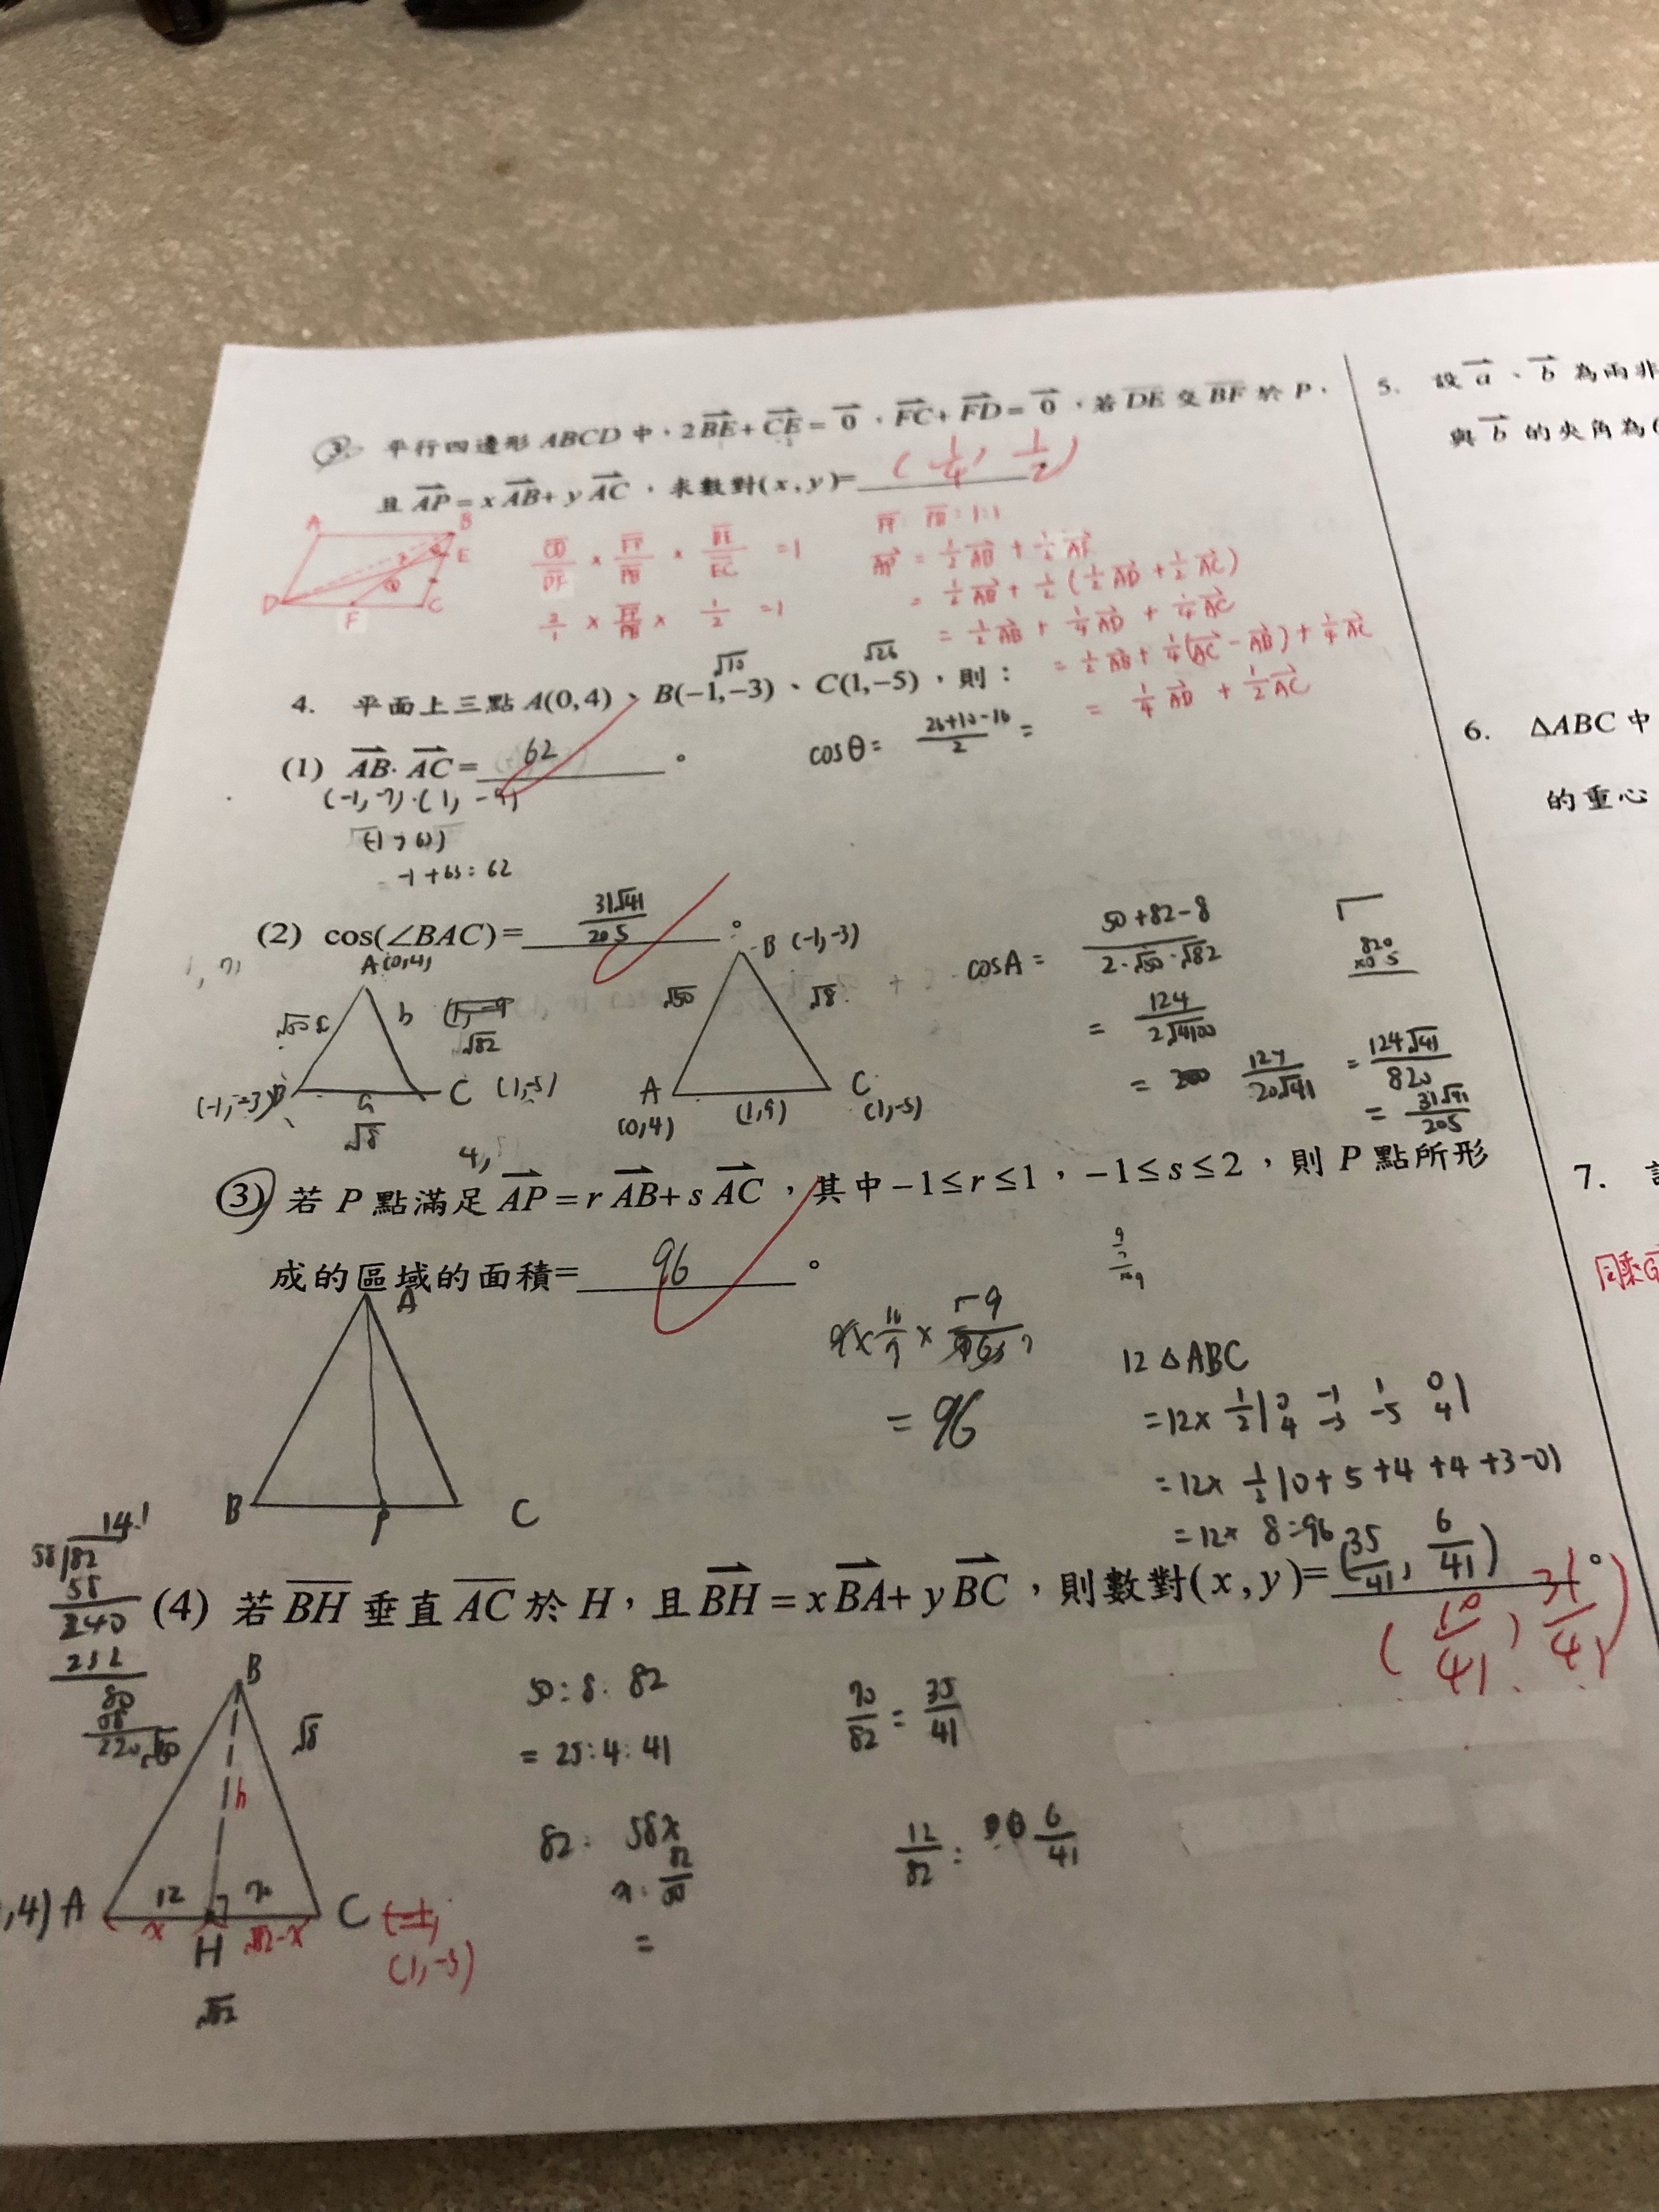 3. 平行四邊形 ABCD 中，2BE + CE = 0，FC + FD = 0，若 DE 交 BF 於 P，
且 AP = x AB + y AC，求數對(x , y)= (1/4, 1/2)
A B E D F C
CD/DF × FP/PB × BE/EC = 1
2/1 × FP/PB × 1/2 = 1
PF : PB = 1:1
AP = 1/2 AB + 1/2 AF
= 1/2 AB + 1/2 (1/2 AD + 1/2 AC)
= 1/2 AB + 1/4 AD + 1/4 AC
= 1/2 AB + 1/4 (AC - AB) + 1/4 AC
= 1/4 AB + 1/2 AC
√10 √26
4. 平面上三點 A(0,4)、B(-1,-3)、C(1,-5)，則：
(1) AB · AC = 62 。
cosθ = (26+10-16)/2 =
(-1, -7)·(1, -9)
-1 + 63 = 62
(2) cos(∠BAC) = 31√41/205 。
A(0,4)
b
√82
C (1,-5)
(-1,-3)B
a
√8
B (-1,-3)
√50 √8
A C
(0,4) (1,9) (1,-5)
cosA = (50+82-8)/(2·√50·√82)
= 124/(2√4100)
= 124/(20√41) = 124√41/820
= 31√41/205
820
(3) 若 P 點滿足 AP = r AB + s AC，其中 -1 ≤ r ≤ 1，-1 ≤ s ≤ 2，則 P 點所形
成的區域的面積 = 96 。
A
B P C
= 96
12 △ABC
= 12 × 1/2 | 0 -1 1 0 |
4 -3 -5 4
= 12 × 1/2 |0+5+4+4+3-0|
= 12 × 8 = 96
(4) 若 BH 垂直 AC 於 H，且 BH = x BA + y BC，則數對(x , y)= (35/41, 6/41) 。
(10/41, 31/41)
14.1
58 82
58
240
232
80
B
√8
h
,4) A 12 70 C
x H √82-x
(1,-5)
√82
50 : 8 : 82
= 25 : 4 : 41
82 : 58x
=
70/82 = 35/41
12/82 = 6/41
5. 設 a、b 為兩非
與 b 的夾角為
6. △ABC 中
的重心
7.
同乘G